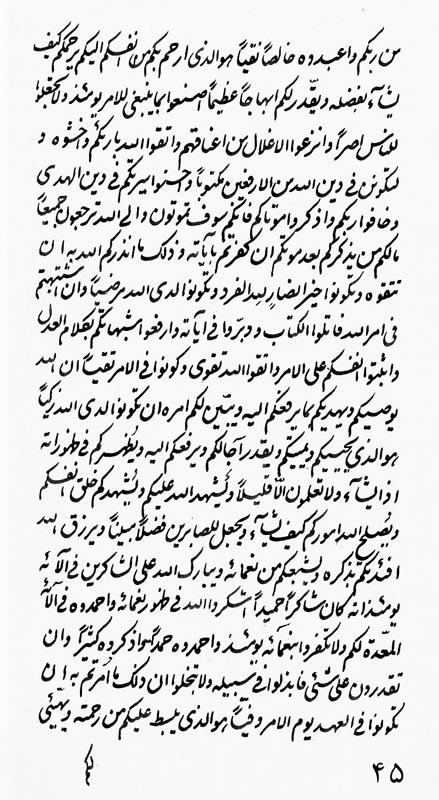 من ربكم واعبدوه خالصاً نقياً هوالذى ارحم بكم من انفسكم اليكم يرحمكم كيف
يشآء بفضله ويقدر لكم ابهاجاً عظيماً اصنعوا بما ينبغى للامر يومئذ ولا تجعلوا
للناس اصراً وانزعوا الاغلال من اعناقهم واتقوا الله بارئكم واخشوه و
لتكونن فى دين الله من الارفعين مكتوباً واحسنوا سيرتكم فى دين الهدى
وخافوا ربكم واذكروا موتاكم فانكم سوف تموتون والى الله ترجعون جميعاً
مالكم من يذكركم بعد موتكم ان كفرتم بآياته وذلك ما انذركم الله به ان
تتقوه وتكونوا اخير انصار لله الفرد وتكونوا لدى الله مرضياً وان اشتبهتم
فى امر الله فاتلوا الكتاب ودبروا فى اياته وارفعوا اشتباهاتكم بكلام العدل
واثبتوا انفسكم على الامر واتقوا الله تقوى وكونوا فى الامر تقياً ان الله
يوصيكم ويهديكم بما يرفعكم اليه ويبين لكم امره ان تكونوا لدى الله زكياً
هوالذى يحييكم ويميتكم ويقدر آجالكم ويرفعكم اليه ويظهركم فى ظهوراته
اذا يشآء ولا تعلمون الا قليلاً ويشهد الله عليكم ويشهدكم خلق انفسكم
ويصلح الله اموركم كيف يشآء ويجعل للصابرين فضلاً مبيناً ويرزق الله
افئدتكم بذكره ويشبعكم من نعمائه ويبارك الله على الشاكرين فى آلائه
يومئذ انه كان شاكراً حميداً اشكروا الله فى ظهور نعمائه واحمدوه فى آلائه
المعدة لكم ولا تكفروا بنعمائه يومئذ واحمدوه حمداً واذكروه كثيراً وان
تقدرون على شئى فابذلوا فى سبيله ولا تبخلوا ان ذلك ما امرتم به ان
تكونوا فى العهد يوم الامر وفياً هوالذى يبسط عليكم من رحمته ويهيئى
لكم
۴۵